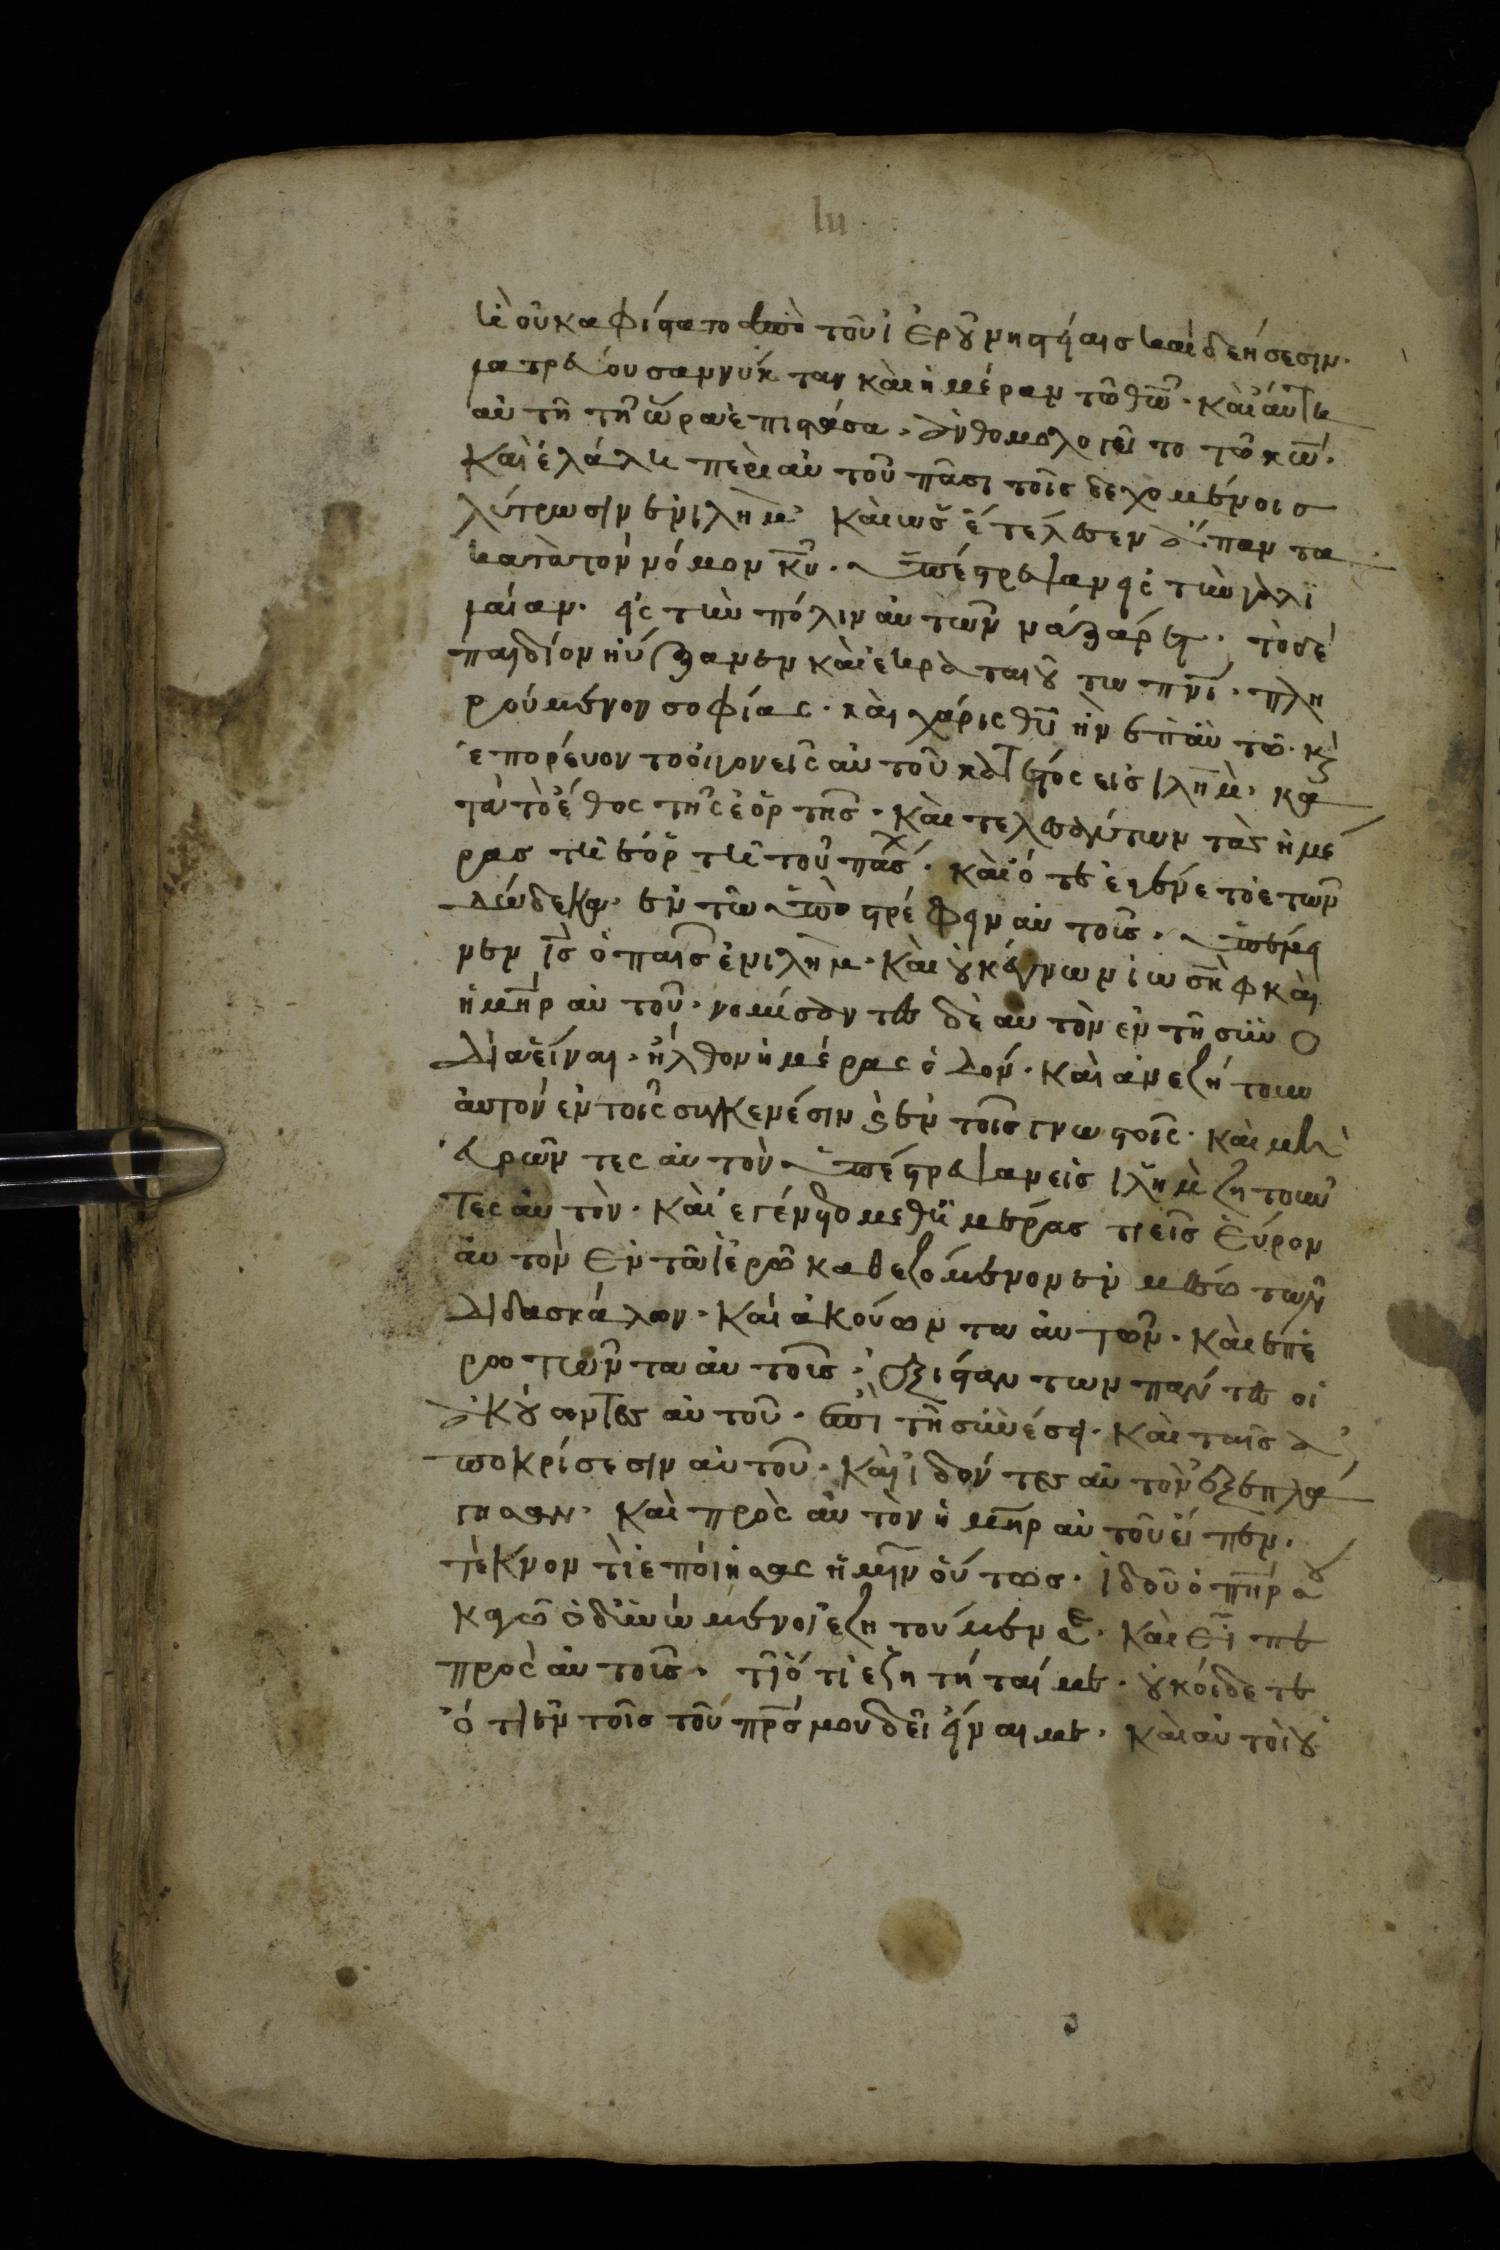 lu
ἣ οὐκ ἀφίστατο ἀπὸ τοῦ ἱεροῦ νηστείαις καὶ δεήσεσιν·
λατρεύουσα νύκταν καὶ ἡμέραν τῶ θῶ· καὶ αὕτη
αὐτῆ τῆ ὥρα ἐπιστᾶσα· ἀνθομολογεῖτο τῶ κῶ·
καὶ ἐλάλει περὶ αὐτοῦ πᾶσι τοῖς δεχομένοις
λύτρωσιν ἐν ιλημ· καὶ ὡς ἐτέλεσεν ἅπαντα
κατὰ τὸν νόμον κυ· ὑπέστρεψαν εἰς τὴν γαλι
λαίαν· εἰς τὴν πόλιν αὐτῶν νάζαρέτ· τὸ δὲ
παιδίον ηὔξανεν καὶ ἐκραταιοῦτω πνι· πλη
ρούμενον σοφίας· καὶ χάρις θυ ἦν ἐπ αὐτῶ· κὶ
ἐπορεύοντο οἱ γονεῖς αὐτοῦ κατ ἔτος εἰς ιλημ· κα
τὰ τὸ ἔθος τῆς ἑορτῆς· καὶ τελειωσάντων τὰς ἡμέ
ρας τῆ ἑορτῆ τοῦ πάσχ· καὶ ὅτε ἐγένετο ἐτῶν
δώδεκα· ἐν τῶ ὑποστρέφειν αὐτοῖς· ὑπέμει
νεν ις ὁ παῖς ἐν ιλημ· καὶ οὐκ ἔγνων ἰωσὴφ καὶ
ἡ μηρ αὐτοῦ· νομίσαντες δὲ αὐτὸν ἐν τῆ συνο
δία εἶναι· ἦλθον ἡμέρας ὁδόν· καὶ ἀνεζήτουν
αὐτὸν ἐν τοῖς συγκενέσιν καὶ ἐν τοῖς γνωστοῖς· καὶ μὴ
εὑρῶντες αὐτὸν ὑπέστρεψαν εἰς ιλημ ζητοῦν
τες αὐτὸν· καὶ ἐγένετο μεθ ἡμέρας τρεῖς εὗρον
αὐτὸν ἐν τῶ ἱερῶ καθεζόμενον ἐν μέσω τῶν
διδασκάλων· καὶ ἀκούωντα αὐτῶν· καὶ ἐπε
ρωτῶντα αὐτοῖς· ἐξίσταντων πάντες οἱ
ἀκούωντες αὐτοῦ· ἐπὶ τῆ συνέσει· καὶ ταῖς ἀ
ποκρίσεσιν αὐτοῦ· καὶ ἰδόντες αὐτὸν ἐξεπλά
γησαν· καὶ πρὸς αὐτὸν ἡ μηρ αὐτοῦ εἶπεν·
τέκνον τί ἐποίησας ἡμῖν οὕτως· ἰδοῦ ὁ πηρ σου
κἀγῶ ὁδυνώμενοι ἐζητούμεν σε· καὶ εἶπε
πρὸς αὐτοῖς· τί ὅτι ἐζητήται με· οὐκ οἴδετε
ὅτι ἐν τοῖς τοῦ πρς μου δεῖ εἶναι με· καὶ αὐτοὶ οὐ